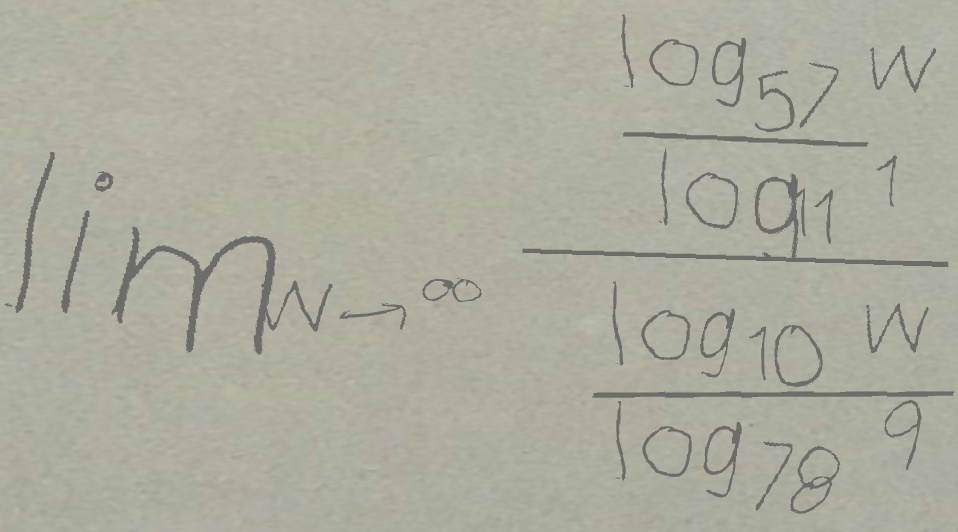 \lim_{w \to \infty} \frac{\frac{\log_{57} w}{\log_{11} 1}}{\frac{\log_{10} w}{\log_{78} 9}}